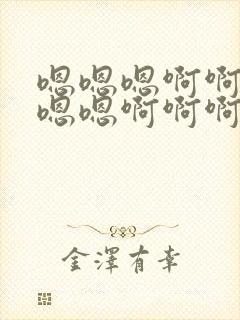 嗯嗯嗯啊啊
嗯嗯啊啊啊
金澤有幸